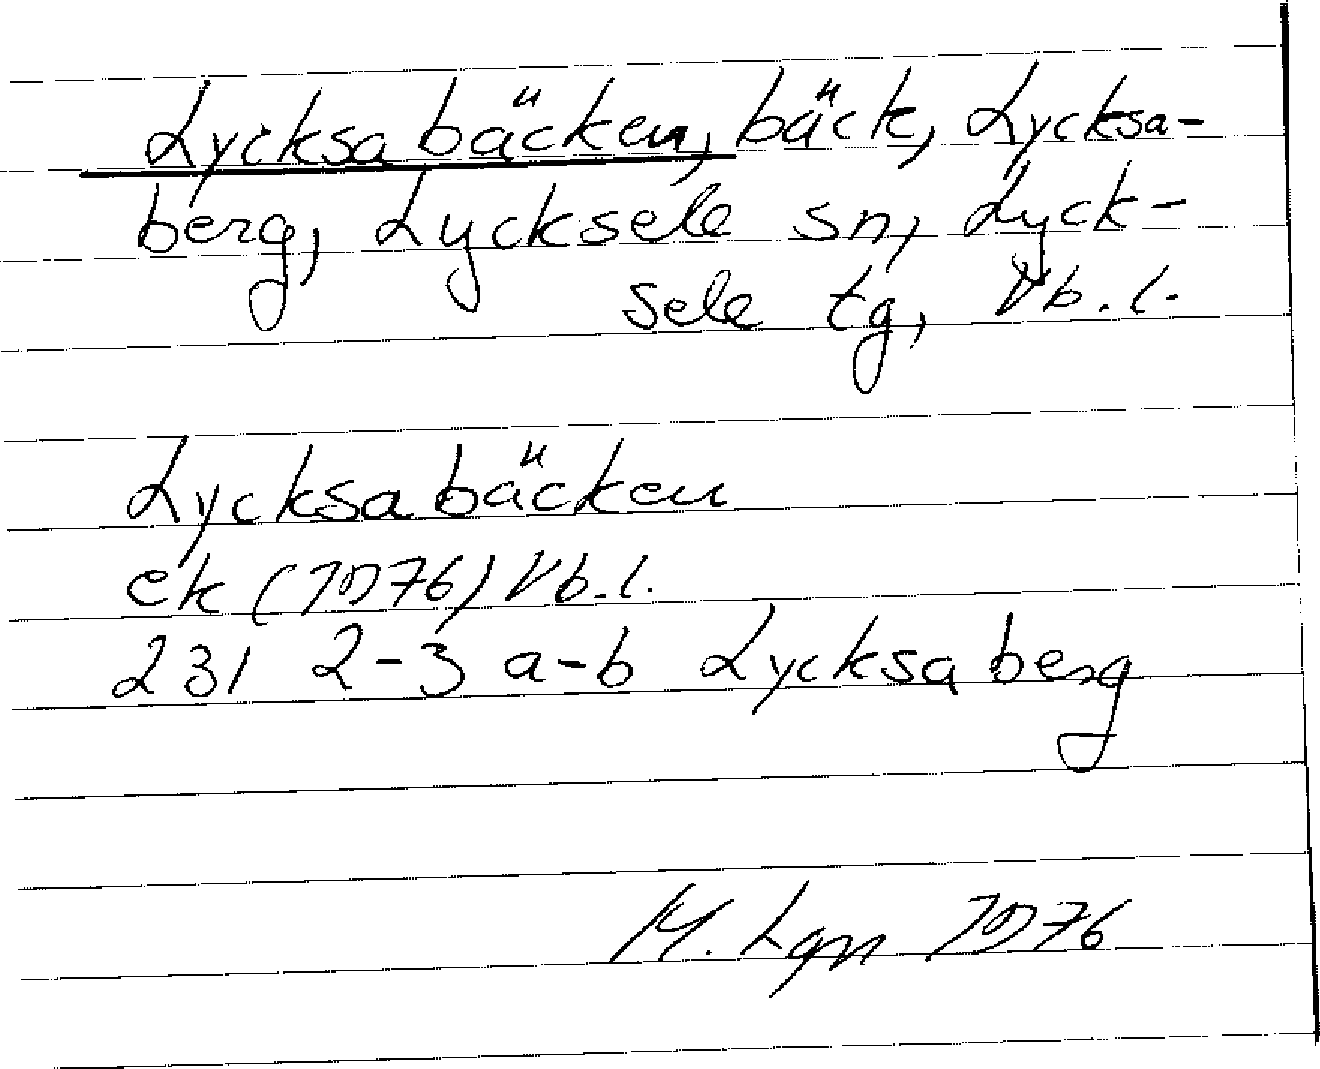 Lycksabäcken, bäck, Lycksa-
berg, Lycksele sn, Lyck-
sele tg, Vb.l.
Lycksabäcken
ek (1976) Vb.l.
231 2-3 a-b Lycksaberg
M. Lgn 1976